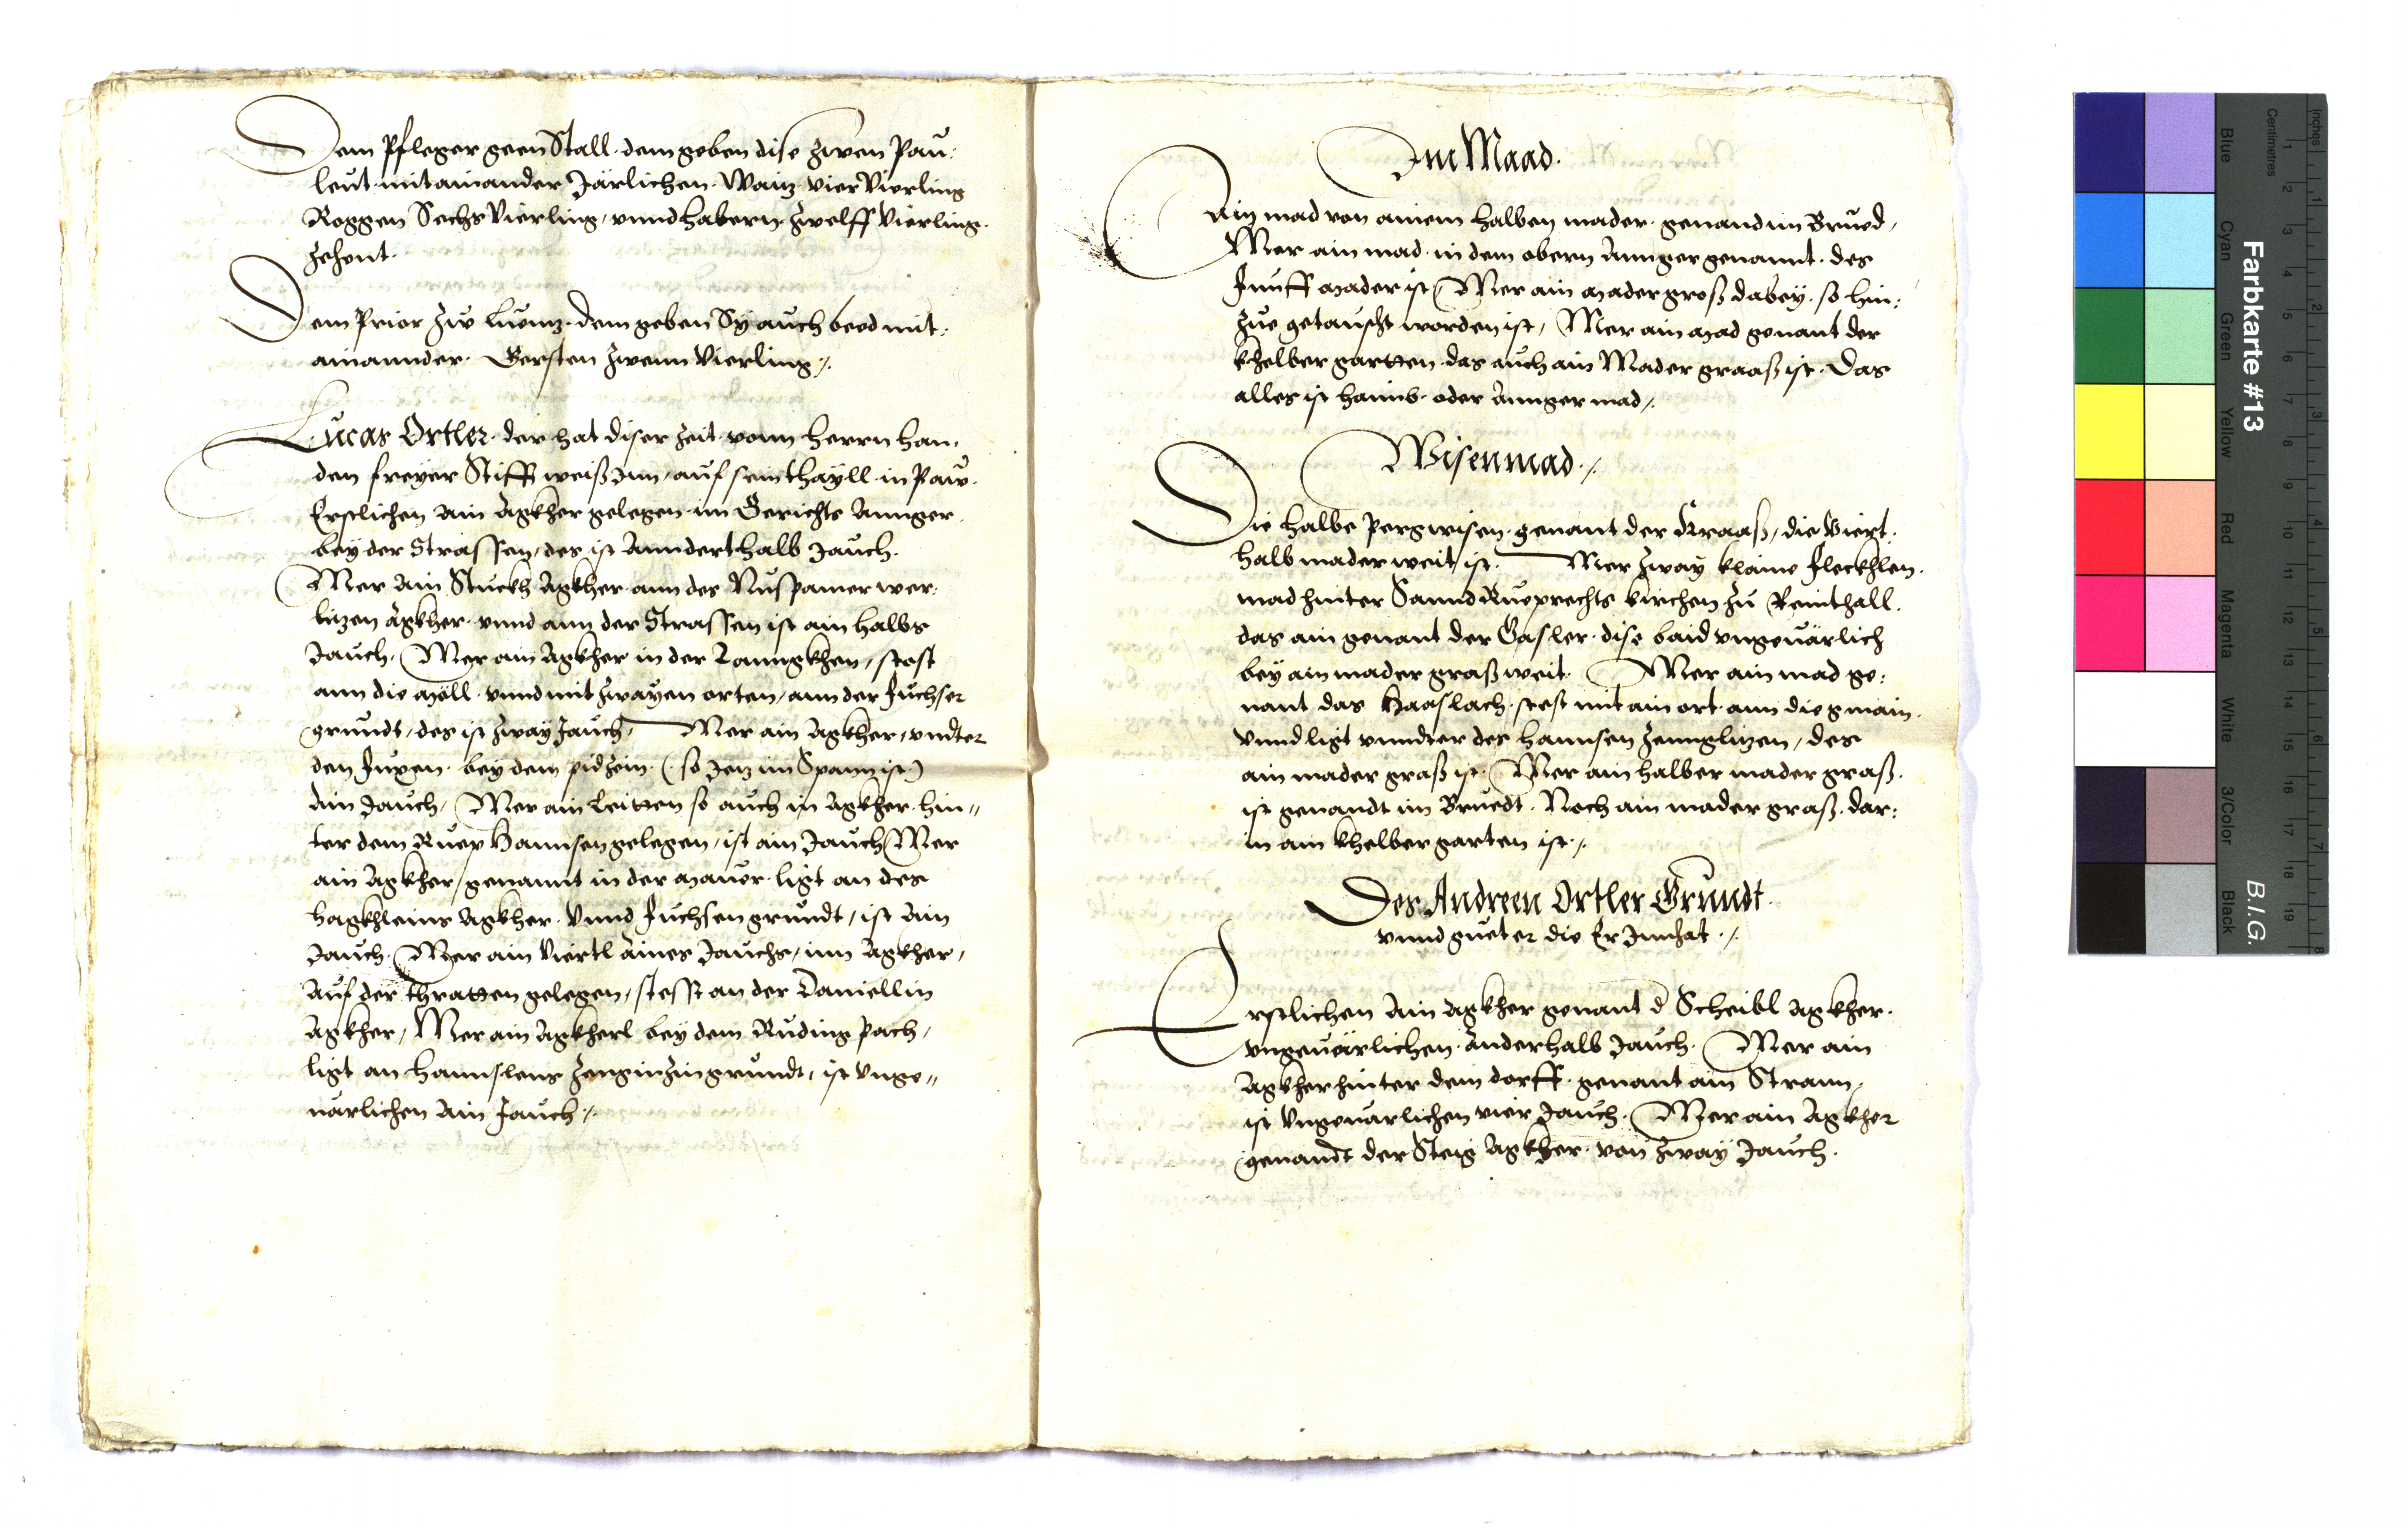 Dem Pfleger geen Stall. dem geben dise zwen Pau:
leut mitainander Järlichen. Waitz vier Vierling
Roggen Sechs Vierling, vnnd habern zwelff Vierling.
zehent.
Dem Prior zw Luentz. dem geben Sy auch beed mit:
ainannder. Gersten zwenn Vierling /.
Lucas Ortler. der hat diser Zeit vonn herrn han:
den freyer Stifft weiß Inn, auf sein thayll in Paw.
Erstlichen Ain Agkher gelegen im Gerichts Annger.
bey der Strassen, des ist Annderthalb Jauch.
Mer Ain Stuckh Agkher ann des Nuspamer wer:
litzen Agkher. vnnd ann der Strassen ist ain halbs
Jauch. Mer ain Agkher in der Lanngkhen, stost
ann die Möll. vnnd mit zwayen orten, ann der Fuchser
grundt, des ist zway Jauch, Mer ain Agkher, vndter
den Fuxen. bey dem pidzein. (so Jetz im Spann ist)
Ain Jauch, Mer ain Leitten so auch in Agkher hin„
ter dem Ruep Hannsen gelegen, ist ain Jauch Mer
ain Agkher, genannt in der Mauer. ligt an des
hagkhleins Agkher. Vnnd Fuchsen grundt, ist Ain
Jauch. Mer ain Viertl Aines Jauchs, im Agkher,
Auf der thratten gelegen, stesst an der Daniellin
Agkher, Mer ain Agkherl bey dem Ruding pach,
ligt an Hannslens grundt, ist Vnge„
uärlichen Ain Jauch /.
Im Maad.
Ain mad von ainem halben mader. genand im Brued,
Mer ain mad. in dem obern Annger genannt. des
Funff mader ist Mer ain mader groß dabey. so hin:
zue getauscht worden ist, Mer ain mad genant der
khelber gartten. das auch ain Mader graaß ist. Das
alles ist haimb. oder Annger mad /.
Wisenmad /.
Die halbe Pergwisen. genant der Kraaß, die Viert:
halb mader weit ist. Mer zway klaine Fleckhlen.
mad hinter Sannd Rueprechts kirchen zu Reinthall.
das ain genant der Gasler. dise baid vngeuärlich
bey ain mader graß weit. Mer ain mad ge:
nant das Haaslach. stest mit ain ort ann die gmain.
Vnnd ligt vnndter des Hannsen Zennglitzen, des
ain mader graß ist. Mer ain halber mader graß.
ist genandt im Bruedt. Noch ain mader graß. dar:
in ain khelbergarten ist /.
Des Andreen Ortler Grundt
vnnd gueter die Er Innhat /.
Erstlichen Ain Agkher genant d Scheibl Agkher.
vngeuärlichen. Anderhalb Jauch. Mer ain
Agkher hinter dem dorff. genant ain Strann,
ist Vngeuärlichen vier Jauch. Mer ain Agkher
genandt der Steig Agkher. von zway Jauch.
Farbkarte #13
B.I.G.
Centimetres
Inches
Blue
Cyan
Green
Yellow
Red
Magenta
White
3/Color
Black